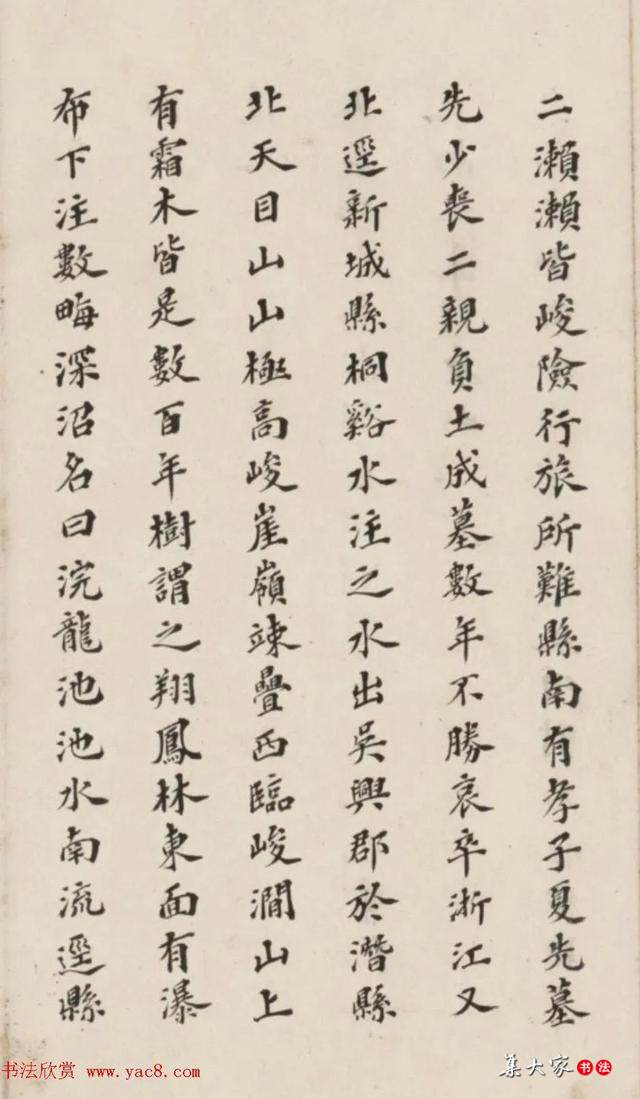 二瀨瀨皆峻險行旅所難縣南有孝子夏先墓
先少喪二親負土成墓數年不勝哀卒浙江又
北逕新城縣桐谿水注之水出吳興郡於潛縣
北天目山山極高峻崖嶺竦疊西臨峻澗山上
有霜木皆是數百年樹謂之翔鳳林東面有瀑
布下注數畮深沼名曰浣龍池池水南流逕縣
书法欣赏 www.yac8.com
集大家书法